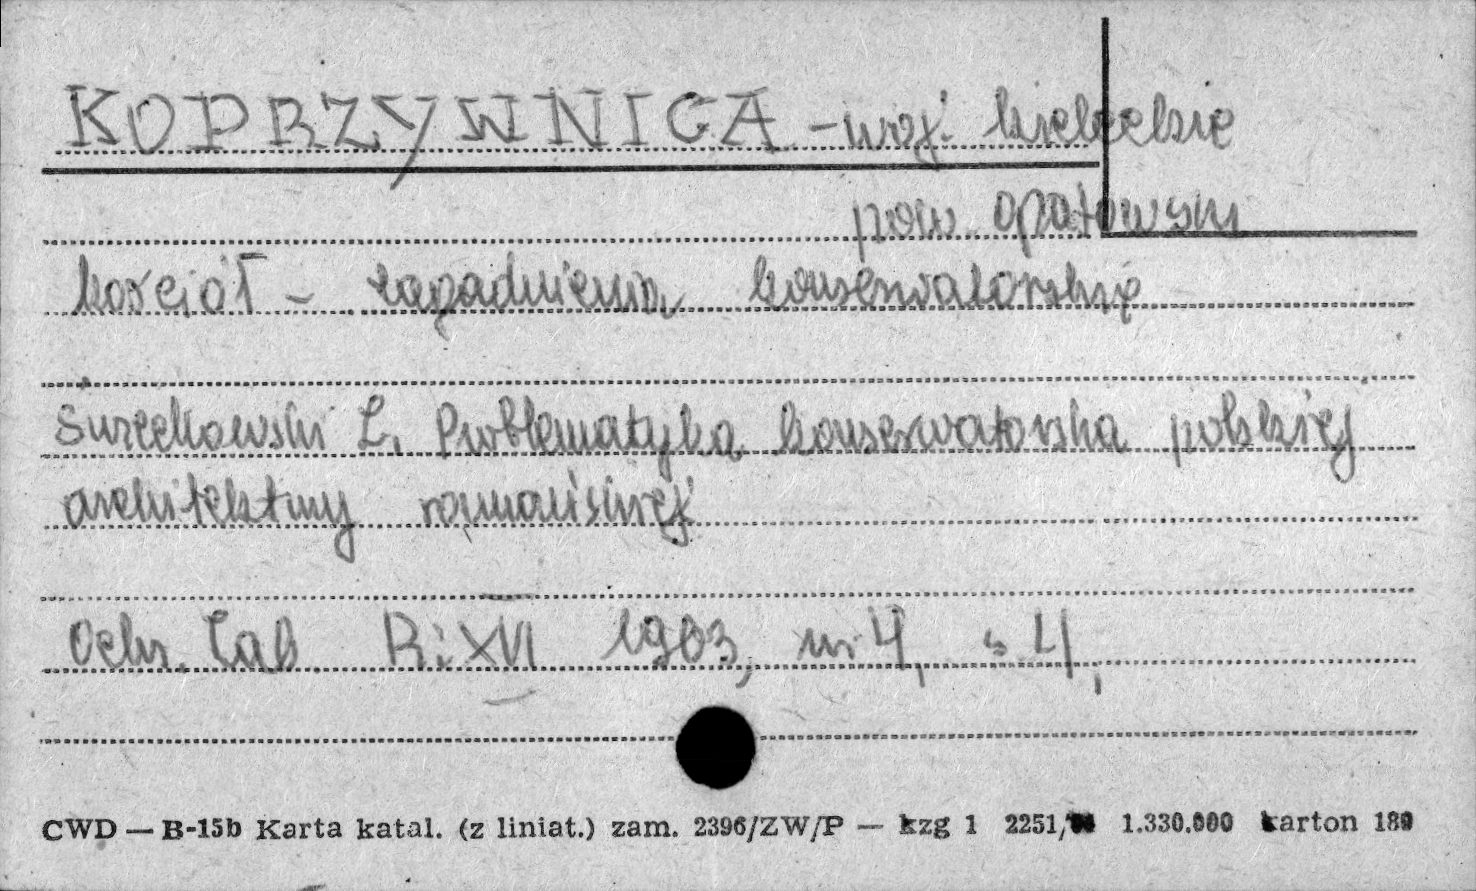 KOPRZYWNICA - woj. kieleckie
pow. opatowski
kościół - zagadnienia konserwatorskie
L. Problematyka konserwatorska polskiej
architektury romańskiej
Ochr. Zab R. XVI 1963, nr 4, s. 4,
CWD — B-15b Karta katal. (z liniat.) zam. 2396/ZW/P — kzg 1 2251/ 1.330.000 karton 180